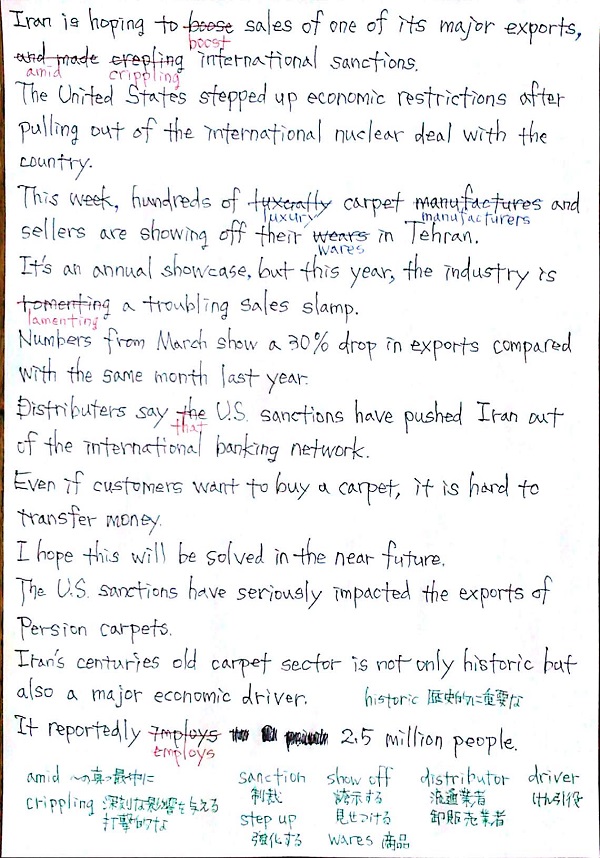 Iran is hoping to boose sales of one of its major exports,
boost
and made crepling international sanctions.
amid crippling
The United States stepped up economic restrictions after
pulling out of the international nuclear deal with the
country.
This week, hundreds of luxcrafty carpet manufactures and
luxury manufacturers
sellers are showing off their wears in Tehran.
wares
It's an annual showcase, but this year, the industry is
tomenting a troubling sales slamp.
lamenting
Numbers from March show a 30% drop in exports compared
with the same month last year.
Distributers say the U.S. sanctions have pushed Iran out
that
of the international banking network.
Even if customers want to buy a carpet, it is hard to
transfer money.
I hope this will be solved in the near future.
The U.S. sanctions have seriously impacted the exports of
Persion carpets.
Iran's centuries old carpet sector is not only historic but
also a major economic driver. historic 歴史的に重要な
It reportedly imploys 2.5 million people.
employs
amid 〜の真っ最中に sanction show off distributor driver
crippling 深刻な影響を与える 制裁 誇示する 流通業者 けん引役
打撃的な step up 見せつける 卸販売業者
強化する wares 商品